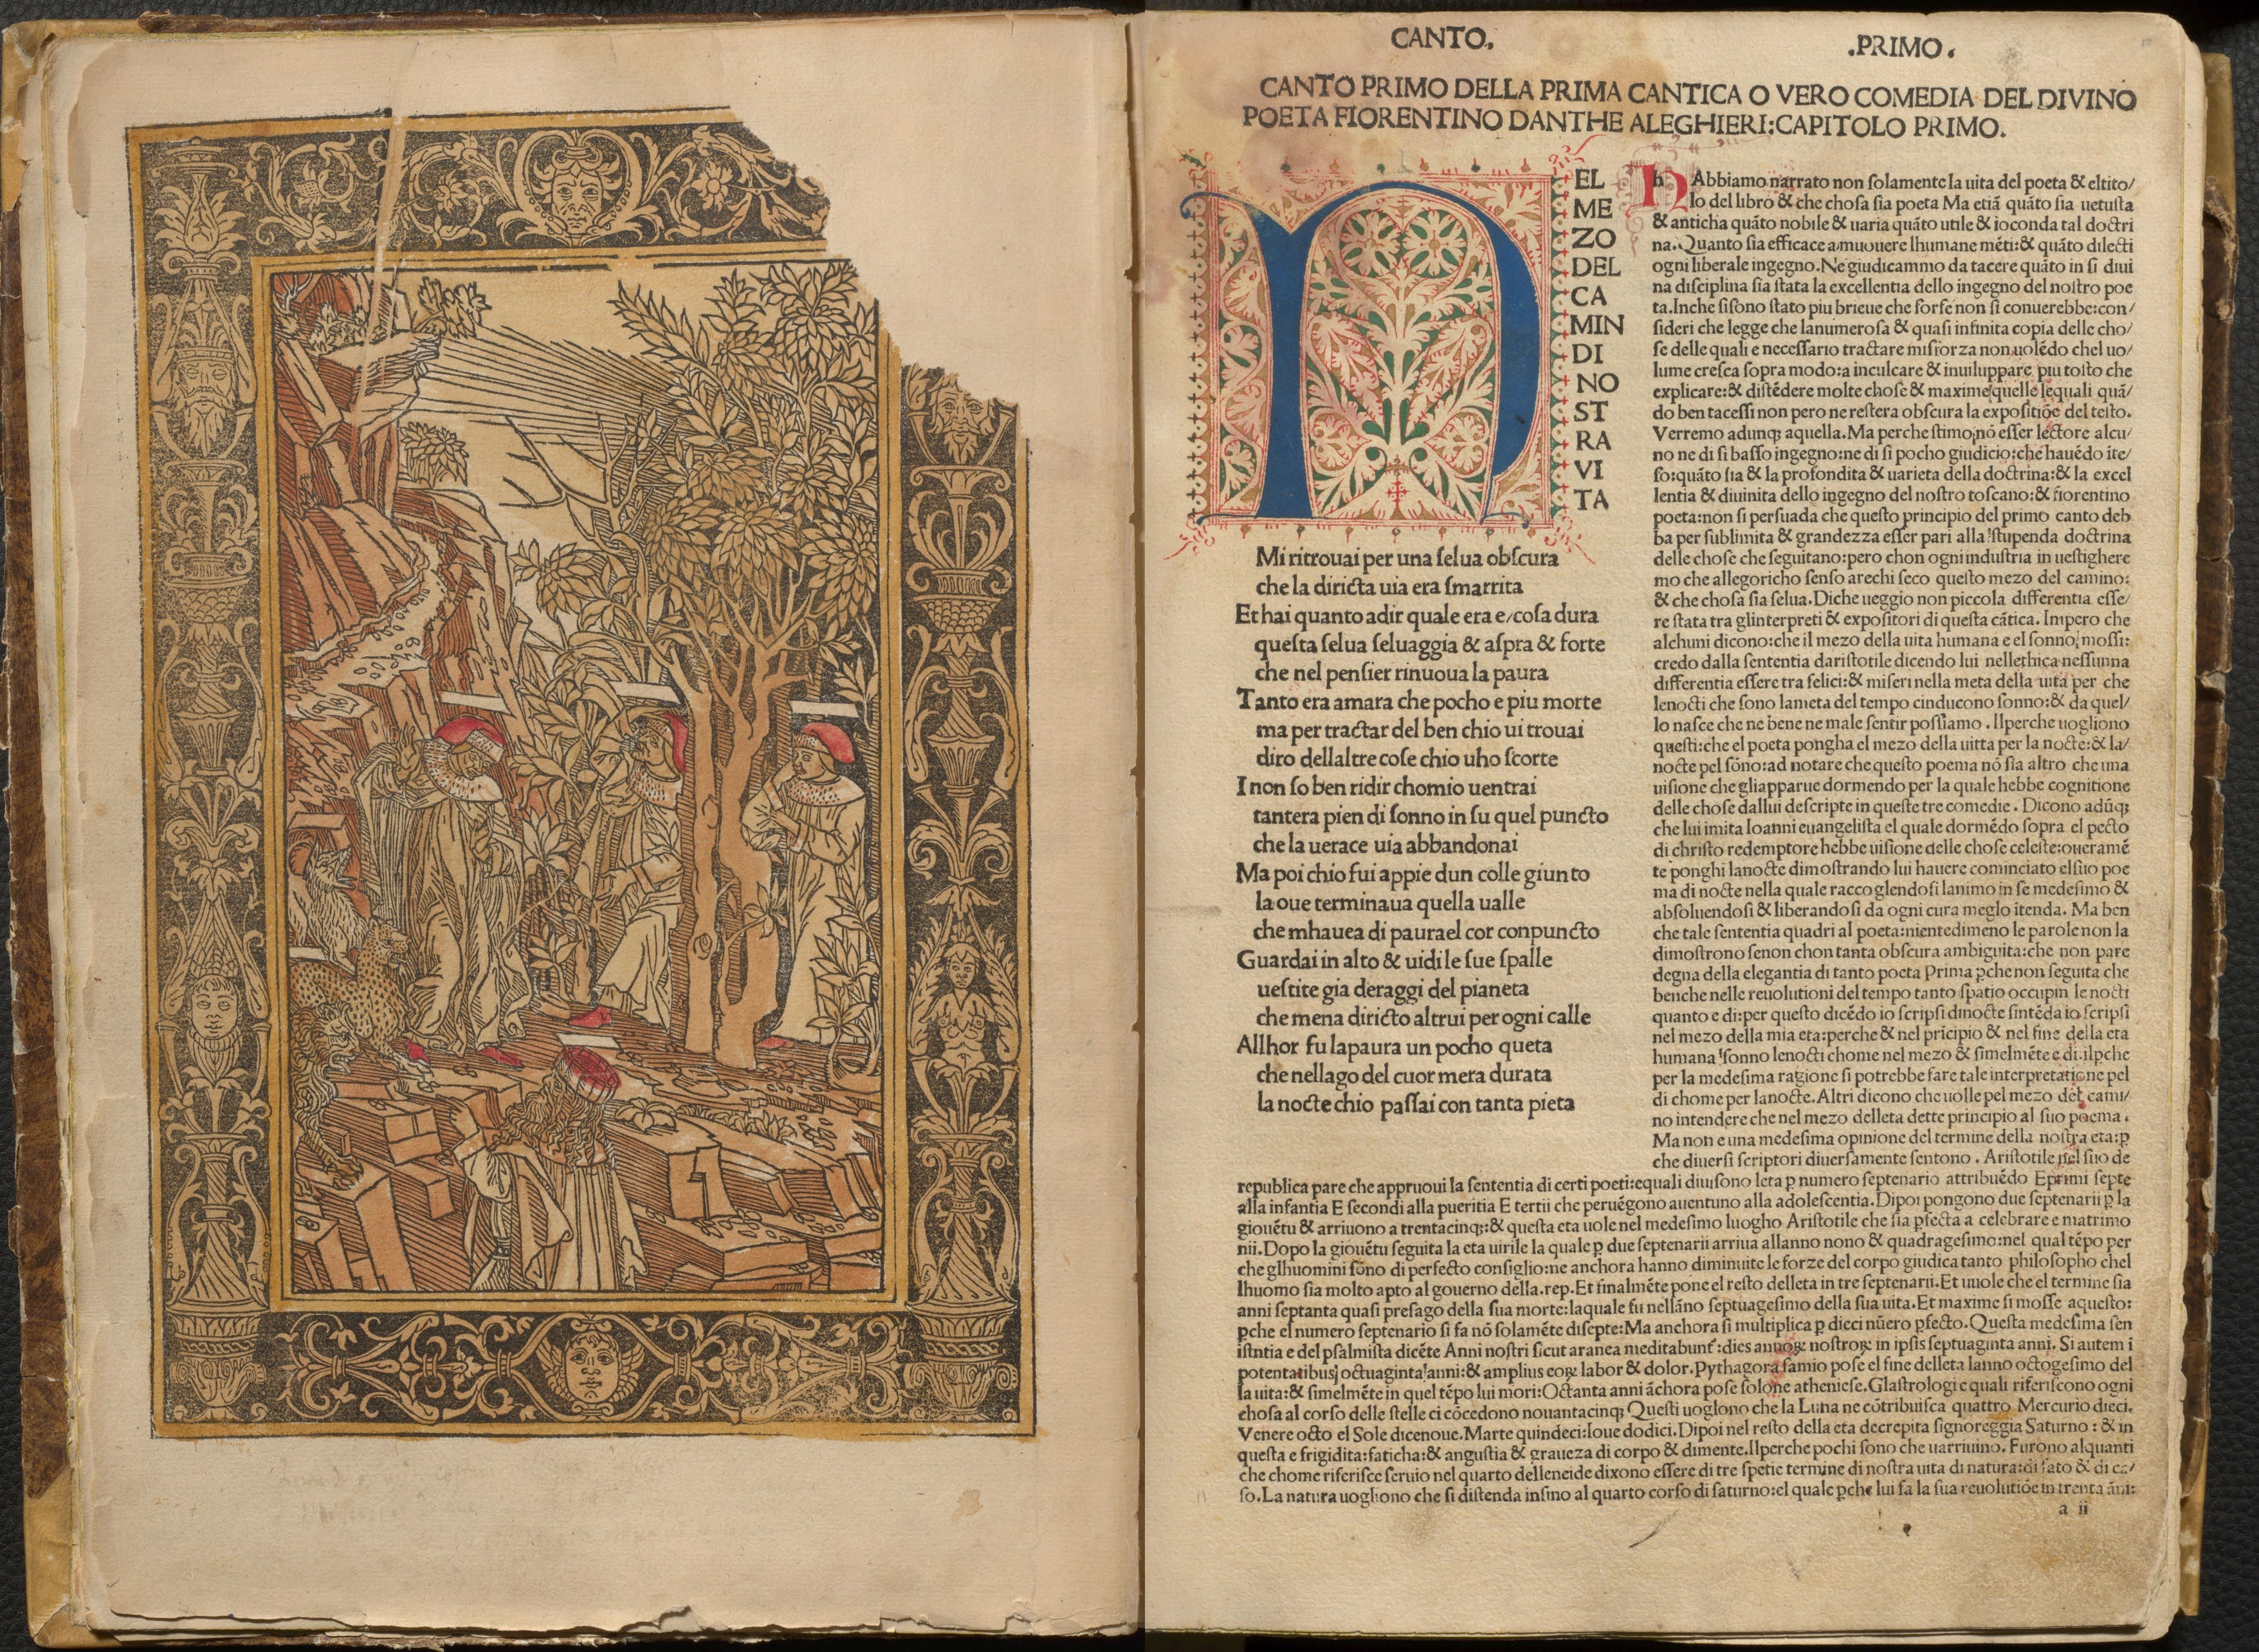 CANTO.
.PRIMO.
CANTO PRIMO DELLA PRIMA CANTICA O VERO COMEDIA DEL DIVINO
POETA FIORENTINO DANTHE ALEGHIERI:CAPITOLO PRIMO.
N
EL
ME
ZO
DEL
CA
MIN
DI
NO
ST
RA
VI
TA
Mi ritrouai per una ſelua obſcura
che la diricta uia era ſmarrita
Et hai quanto adir quale era e/coſa dura
queſta ſelua ſeluaggia & aſpra & forte
che nel penſier rinuoua la paura
Tanto era amara che pocho e piu morte
ma per tractar del ben chio ui trouai
diro dellaltre coſe chio uho ſcorte
I non ſo ben ridir chomio uentrai
tantera pien di ſonno in ſu quel puncto
che la uerace uia abbandonai
Ma poi chio fui appie dun colle giunto
la oue terminaua quella ualle
che mhauea di paurael cor conpuncto
Guardai in alto & uidi le ſue ſpalle
ueſtite gia deraggi del pianeta
che mena diricto altrui per ogni calle
Allhor fu lapaura un pocho queta
che nellago del cuor mera durata
la nocte chio paſſai con tanta pieta
h Abbiamo narrato non ſolamente la uita del poeta & eltito/
lo del libro & che choſa ſia poeta Ma etiā quāto ſia uetuſta
& anticha quāto nobile & uaria quāto utile & ioconda tal doctri
na. Quanto ſia efficace amuouere lhumane mēti:& quāto dilecti
ogni liberale ingegno. Ne giudicammo da tacere quāto in ſi diui
na diſciplina ſia ſtata la excellentia dello ingegno del noſtro poe
ta. Inche ſiſono ſtato piu brieue che forſe non ſi conuerebbe:con/
ſideri che legge che lanumeroſa & quaſi infinita copia delle cho/
ſe delle quali e neceſſario tractare miſforza non uolēdo chel uo/
lume creſca ſopra modo:a inculcare & inuiluppare piu toſto che
explicare:& diſtēdere molte choſe & maxime quelle lequali quā/
do ben taceſſi non pero ne reſtera obſcura la expoſitiōe del teſto.
Verremo adunqꝫ aquella. Ma perche ſtimo nō eſſer lectore alcu/
no ne di ſi baſſo ingegno:ne di ſi pocho giudicio:che hauēdo īte/
ſo:quāto ſia & la profondita & uarieta della doctrina:& la excel
lentia & diuinita dello ingegno del noſtro toſcano:& fiorentino
poeta:non ſi perſuada che queſto principio del primo canto deb
ba per ſublimita & grandezza eſſer pari alla ſtupenda doctrina
delle choſe che ſeguitano:pero chon ogni induſtria in ueſtighere
mo che allegoricho ſenſo arechi ſeco queſto mezo del camino:
& che choſa ſia ſelua. Diche ueggio non piccola differentia eſſe/
re ſtata tra glinterpreti & expoſitori di queſta cātica. Impero che
alchuni dicono:che il mezo della uita humana e el ſonno moſſi:
credo dalla ſententia dariſtotile dicendo lui nellethica neſſunna
differentia eſſere tra felici:& miſeri nella meta della uita per che
lenocti che ſono lameta del tempo cinducono ſonno:& da quel/
lo naſce che ne bene ne male ſentir poſſiamo . Ilperche uogliono
queſti:che el poeta pongha el mezo della uitta per la nocte:& la/
nocte pel ſōno:ad notare che queſto poema nō ſia altro che una
uiſione che gliapparue dormendo per la quale hebbe cognitione
delle choſe dallui deſcripte in queſte tre comedie . Dicono adūqꝫ
che lui imita Ioanni euangeliſta el quale dormēdo ſopra el pecto
di chriſto redemptore hebbe uiſione delle choſe celeſte:oueramē
te ponghi lanocte dimoſtrando lui hauere cominciato elſuo poe
ma di nocte nella quale raccoglendoſi lanimo in ſe medeſimo &
abſoluendoſi & liberandoſi da ogni cura meglo ītenda. Ma ben
che tale ſententia quadri al poeta:nientedimeno le parole non la
dimoſtrono ſenon chon tanta obſcura ambiguita:che non pare
degna della elegantia di tanto poeta Prima ꝑche non ſeguita che
benche nelle reuolutioni del tempo tanto ſpatio occupin le nocti
quanto e di:per queſto dicēdo io ſcripſi dinocte ſintēda io ſcripſi
nel mezo della mia eta:perche & nel pricipio & nel fine della eta
humana ſonno lenocti chome nel mezo & ſimelmēte e di.ilpche
per la medeſima ragione ſi potrebbe fare tale interpretatione pel
di chome per lanocte. Altri dicono che uolle pel mezo del cami/
no intendere che nel mezo delleta dette principio al ſuo poema .
Ma non e una medeſima opinione del termine della noſtra eta:ꝑ
che diuerſi ſcriptori diuerſamente ſentono . Ariſtotile nel ſuo de
republica pare che appruoui la ſententia di certi poeti:equali diuiſono leta ꝑ numero ſeptenario attribuēdo E primi ſepte
alla infantia E ſecondi alla pueritia E tertii che peruēgono auentuno alla adoleſcentia. Dipoi pongono due ſeptenarii ꝑ la
giouētu & arriuono a trentacinqꝫ:& queſta eta uole nel medeſimo luogho Ariſtotile che ſia ꝑfecta a celebrare e matrimo
nii. Dopo la giouētu ſeguita la eta uirile la quale ꝑ due ſeptenarii arriua allanno nono & quadrageſimo:nel qual tēpo per
che glhuomini ſono di perfecto conſiglio:ne anchora hanno diminuite le forze del corpo giudica tanto philoſopho chel
lhuomo ſia molto apto al gouerno della.rep. Et finalmēte pone el reſto delleta in tre ſeptenarii. Et uuole che el termine ſia
anni ſeptanta quaſi preſago della ſua morte:laquale fu nellāno ſeptuageſimo della ſua uita. Et maxime ſi moſſe aqueſto:
ꝑche el numero ſeptenario ſi fa nō ſolamēte diſepte:Ma anchora ſi multiplica ꝑ dieci nūero ꝑfecto. Queſta medeſima ſen
tentia e del pſalmiſta dicēte Anni noſtri ſicut aranea meditabunt̄:dies annoꝝ noſtroꝝ in ipſis ſeptuaginta anni. Si autem ī
potentatibus octuaginta anni:& amplius eoꝝ labor & dolor. Pythagora ſamio poſe el fine delleta lanno octogeſimo del
la uita:& ſimelmēte in quel tēpo lui mori:Octanta anni āchora poſe ſolone athenieſe. Glaſtrologi e quali riferiſcono ogni
choſa al corſo delle ſtelle ci cōcedono nouantacinqꝫ Queſti uoglono che la Luna ne cōtribuiſca quattro Mercurio dieci.
Venere octo el Sole dicenoue. Marte quindeci:Ioue dodici. Dipoi nel reſto della eta decrepita ſignoreggia Saturno : & in
queſta e frigidita:faticha:& anguſtia & graueza di corpo & dimente. Ilperche pochi ſono che uarriuino. Furono alquanti
che chome riferiſce ſeruio nel quarto delleneide dixono eſſere di tre ſpetie termine di noſtra uita di natura:di fato & di ca/
ſo. La natura uogliono che ſi diſtenda inſino al quarto corſo di ſaturno:el quale ꝑche lui fa la ſua reuolutiōe in trenta āni:
a ii